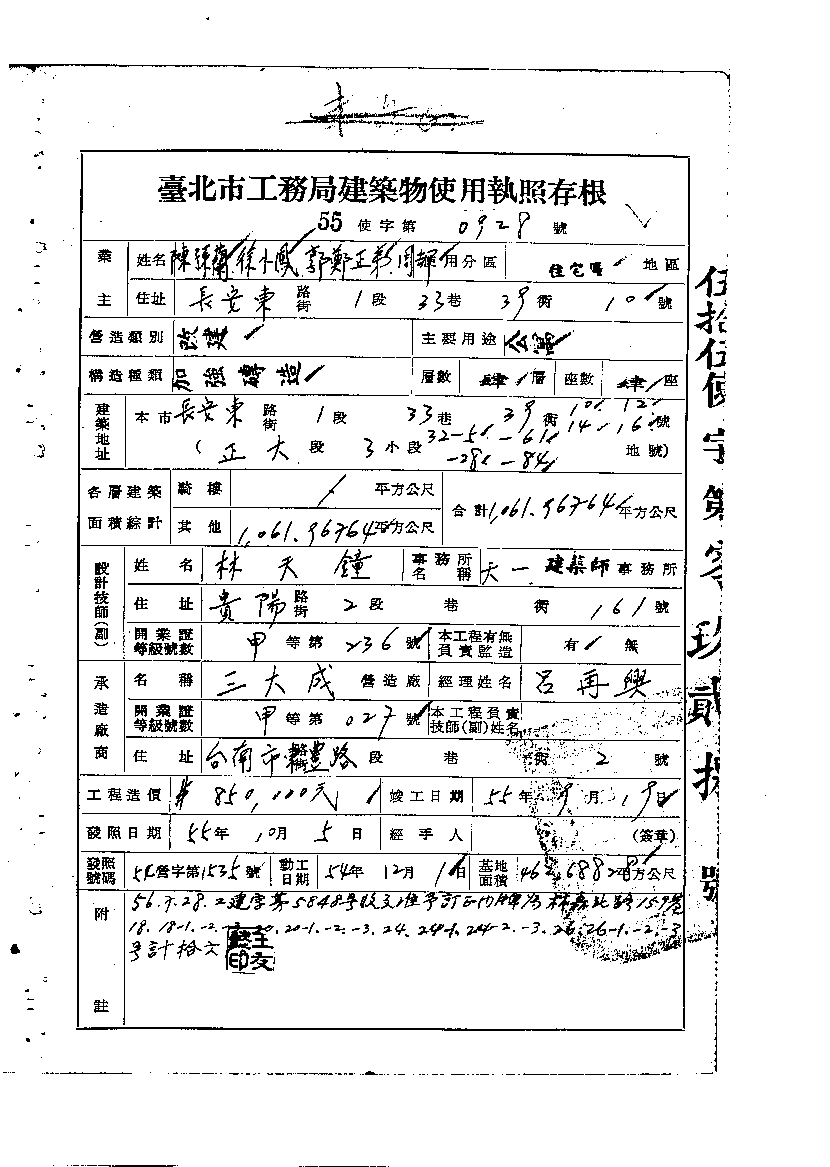 臺北市工務局建築物使用執照存根
55 使字第 0928 號
業主 姓名 徐小鳳 用分區 住宅區 地區
住址 長安東 路街 1 段 33 巷 39 衖 10 號
營造類別 改建 主要用途 公寓
構造種類 加強磚造 層數 肆 層 座數 肆 座
建築地址 本市 長安東 路街 1 段 33 巷 39 衖 10. 12. 14. 16. 號
( 正大 段 3 小段 32-51. -61. -281. -84. 地號)
各層建築面積綜計 騎樓 / 平方公尺 合計 1,061.96764 平方公尺
其他 1,061.96764 平方公尺
設計技師(副) 姓名 林天鐘 事務所名稱 天一 建築師 事務所
住址 貴陽 路街 2 段 巷 衖 161 號
開業證等級號數 甲 等第 236 號 本工程有無負責監造 有 無
承造廠商 名稱 三大成 營造廠 經理姓名 呂再興
開業證等級號數 甲 等第 027 號 本工程負責技師(副)姓名
住址 台南市 路 段 巷 衖 2 號
工程造價 850,000元 竣工日期 55 年 9 月 19 日
發照日期 55 年 10 月 5 日 經手人 (簽章)
發照號碼 54 營字第 1535 號 動工日期 54 年 12 月 1 日 基地面積 平方公尺
附註 56.7.28.2建字第5848號 訂正門牌為林森北路159巷
18.18-1.-2.-3.20.20-1.-2.-3.24.24-1.24-2.-3.26.26-1.-2.-3
號計拾六
伍拾伍使字第零玖貳捌號